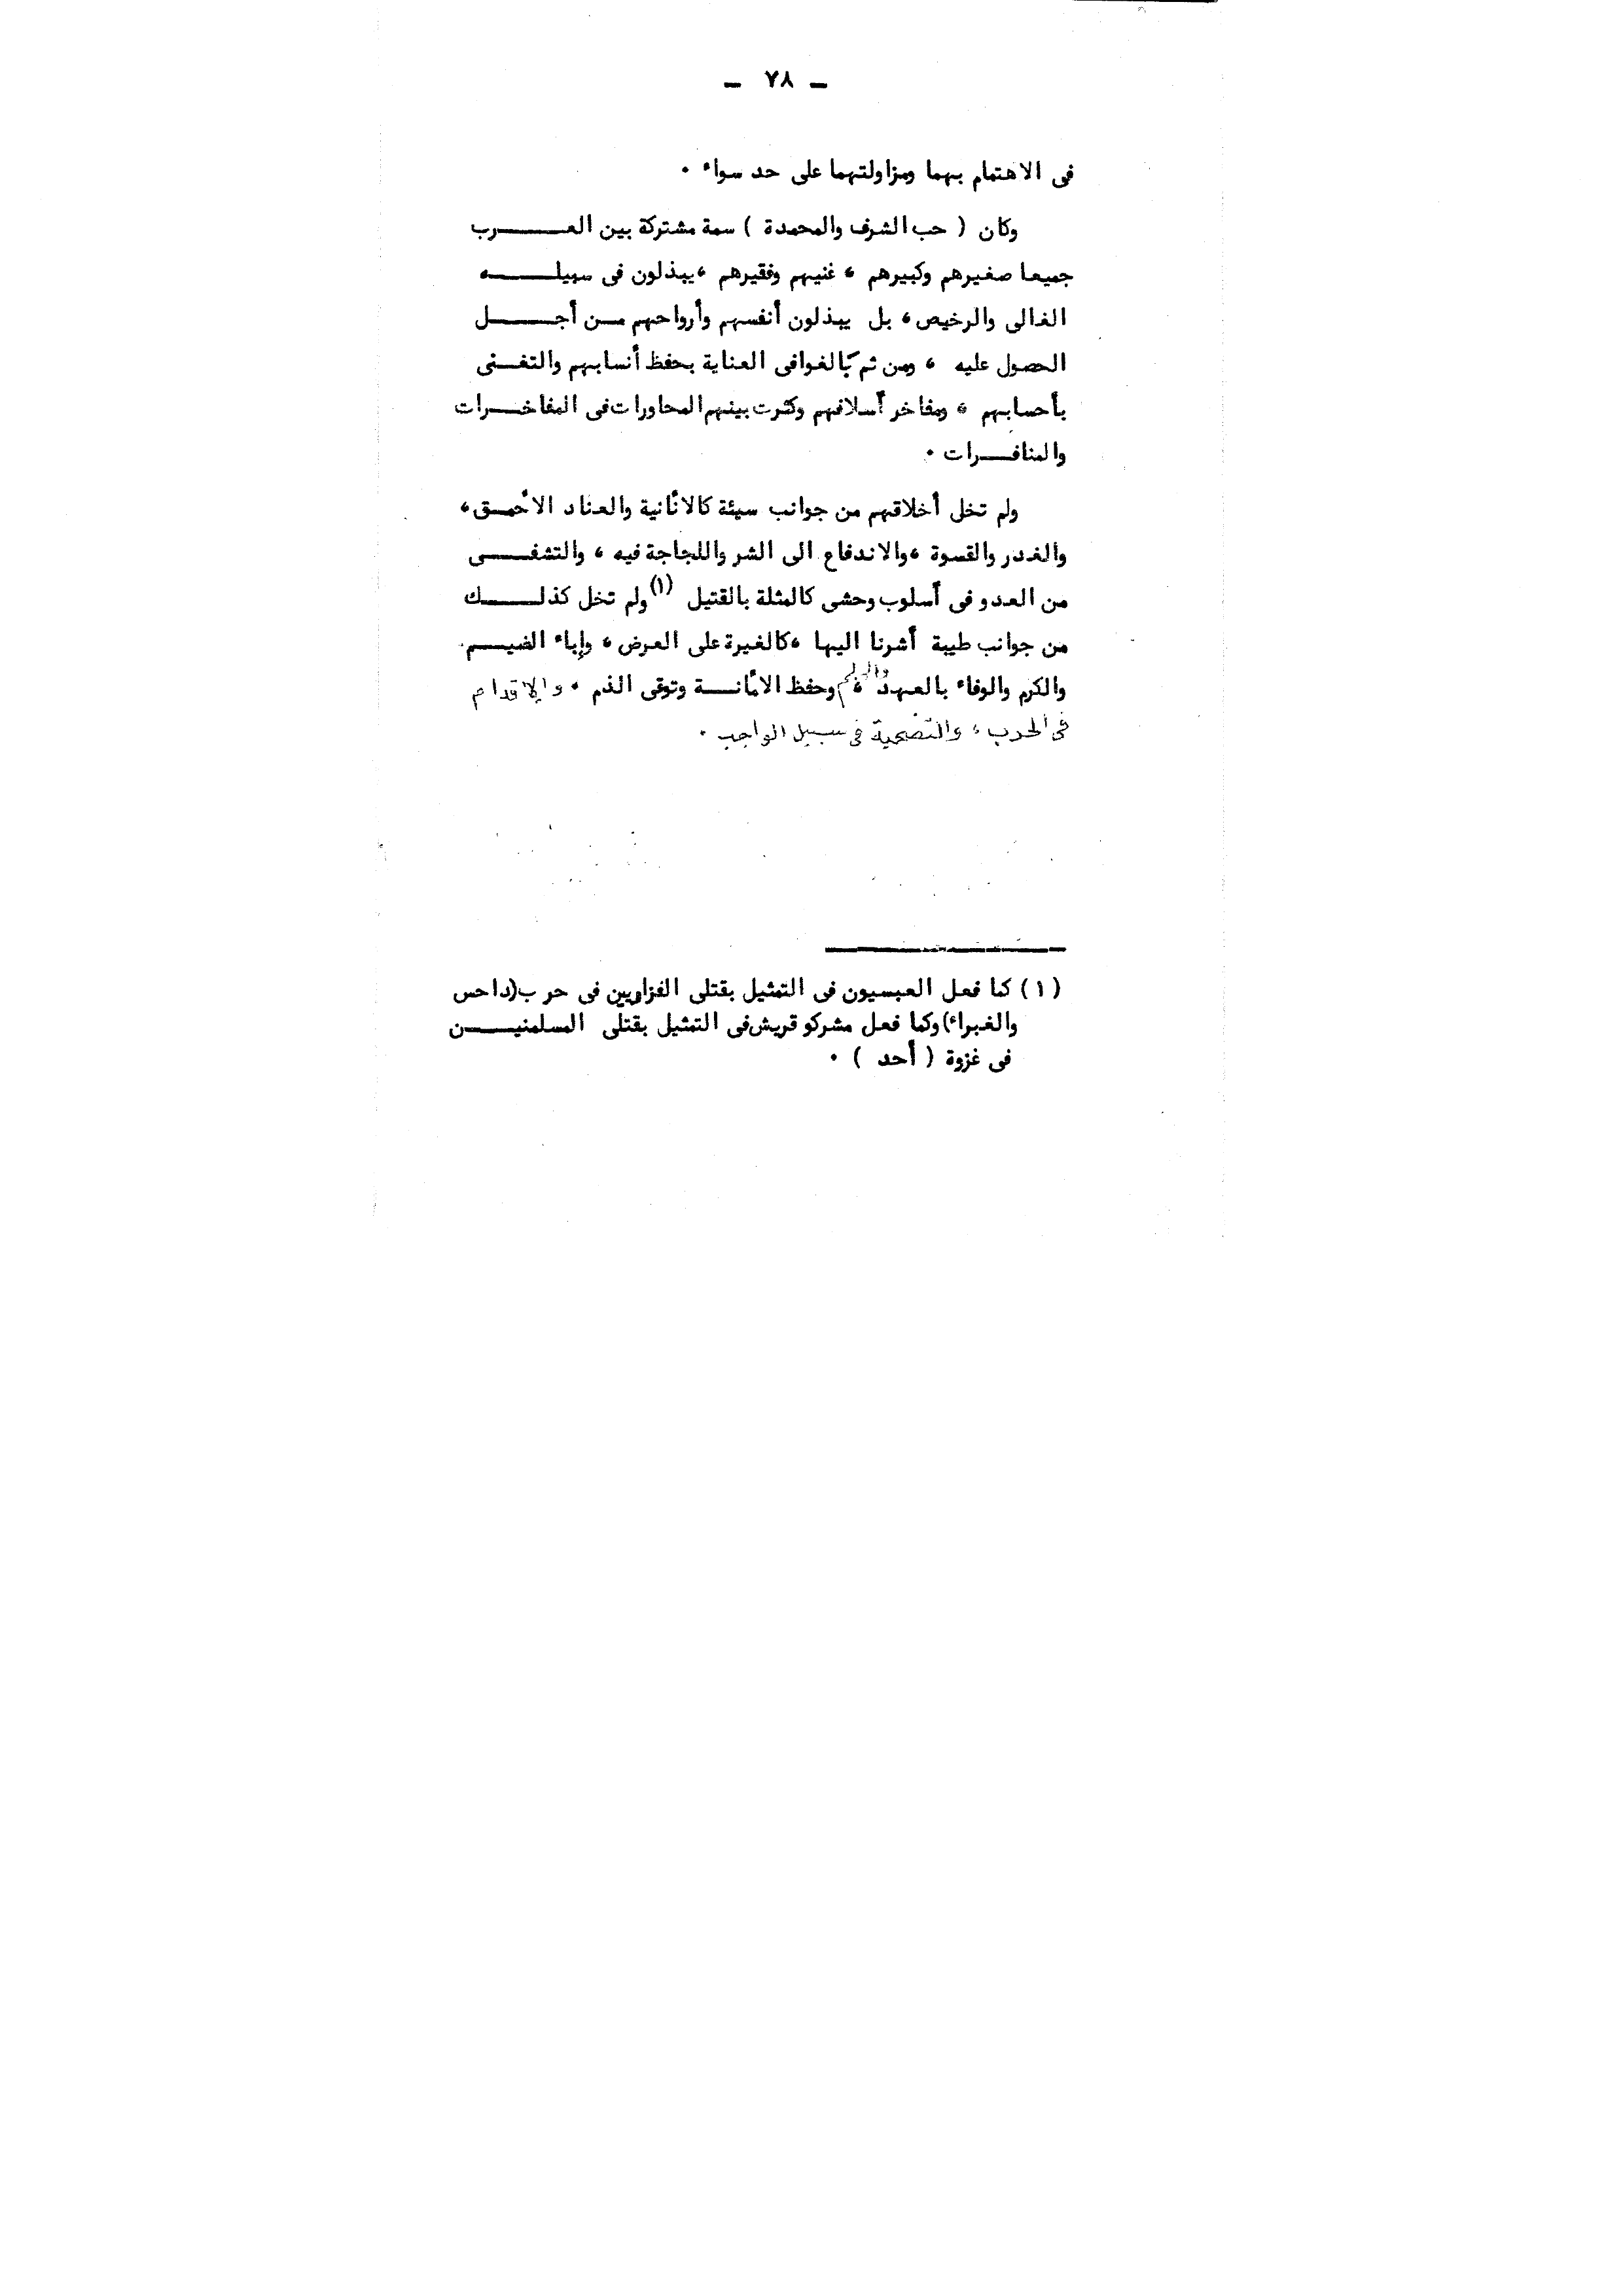 ـ ٧٨ ـ
فى الاهتمام بهما ومزاولتهما على حد سواء ٠
وكان ( حب الشرف والمحمدة ) سمة مشتركة بين العـــــرب
جميعا صغيرهم وكبيرهم ، غنيهم وفقيرهم ، يبذلون فى سبيلــــه
الغالى والرخيص ، بل يبذلون أنفسهم وأرواحهم مــن أجـــــل
الحصول عليه ، ومن ثم بَالغوا فى العناية بحفظ أنسابهم والتغــنى
بأحسابهم ، ومفاخر أسلافهم وكثرت بينهم المحاورات فى المفاخــرات
والمنافــرات ٠
ولم تخل أخلاقهم من جوانب سيئة كالأنانية والعناد الأحمــق ،
والغدر والقسوة ، والاندفاع الى الشر واللجاجة فيه ، والتشفـــى
من العدو فى أسلوب وحشى كالمثلة بالقتيل (١) ولم تخل كذلـــــك
من جوانب طيبة أشرنا اليها ، كالغيرة على العرض ، وإباء الضيــم
والكرم والوفاء بالعهد ، وحفظ الأمانــة وتوقى الذم ٠ والإقدام
فى الحرب ، والتضحية فى سبيل الواجب ٠
(١) كما فعل العبسيون فى التمثيل بقتلى الفزاريين فى حرب (داحس
والغبراء) وكما فعل مشركو قريش فى التمثيل بقتلى المسلمنيـــن
فى غزوة ( أحد ) ٠